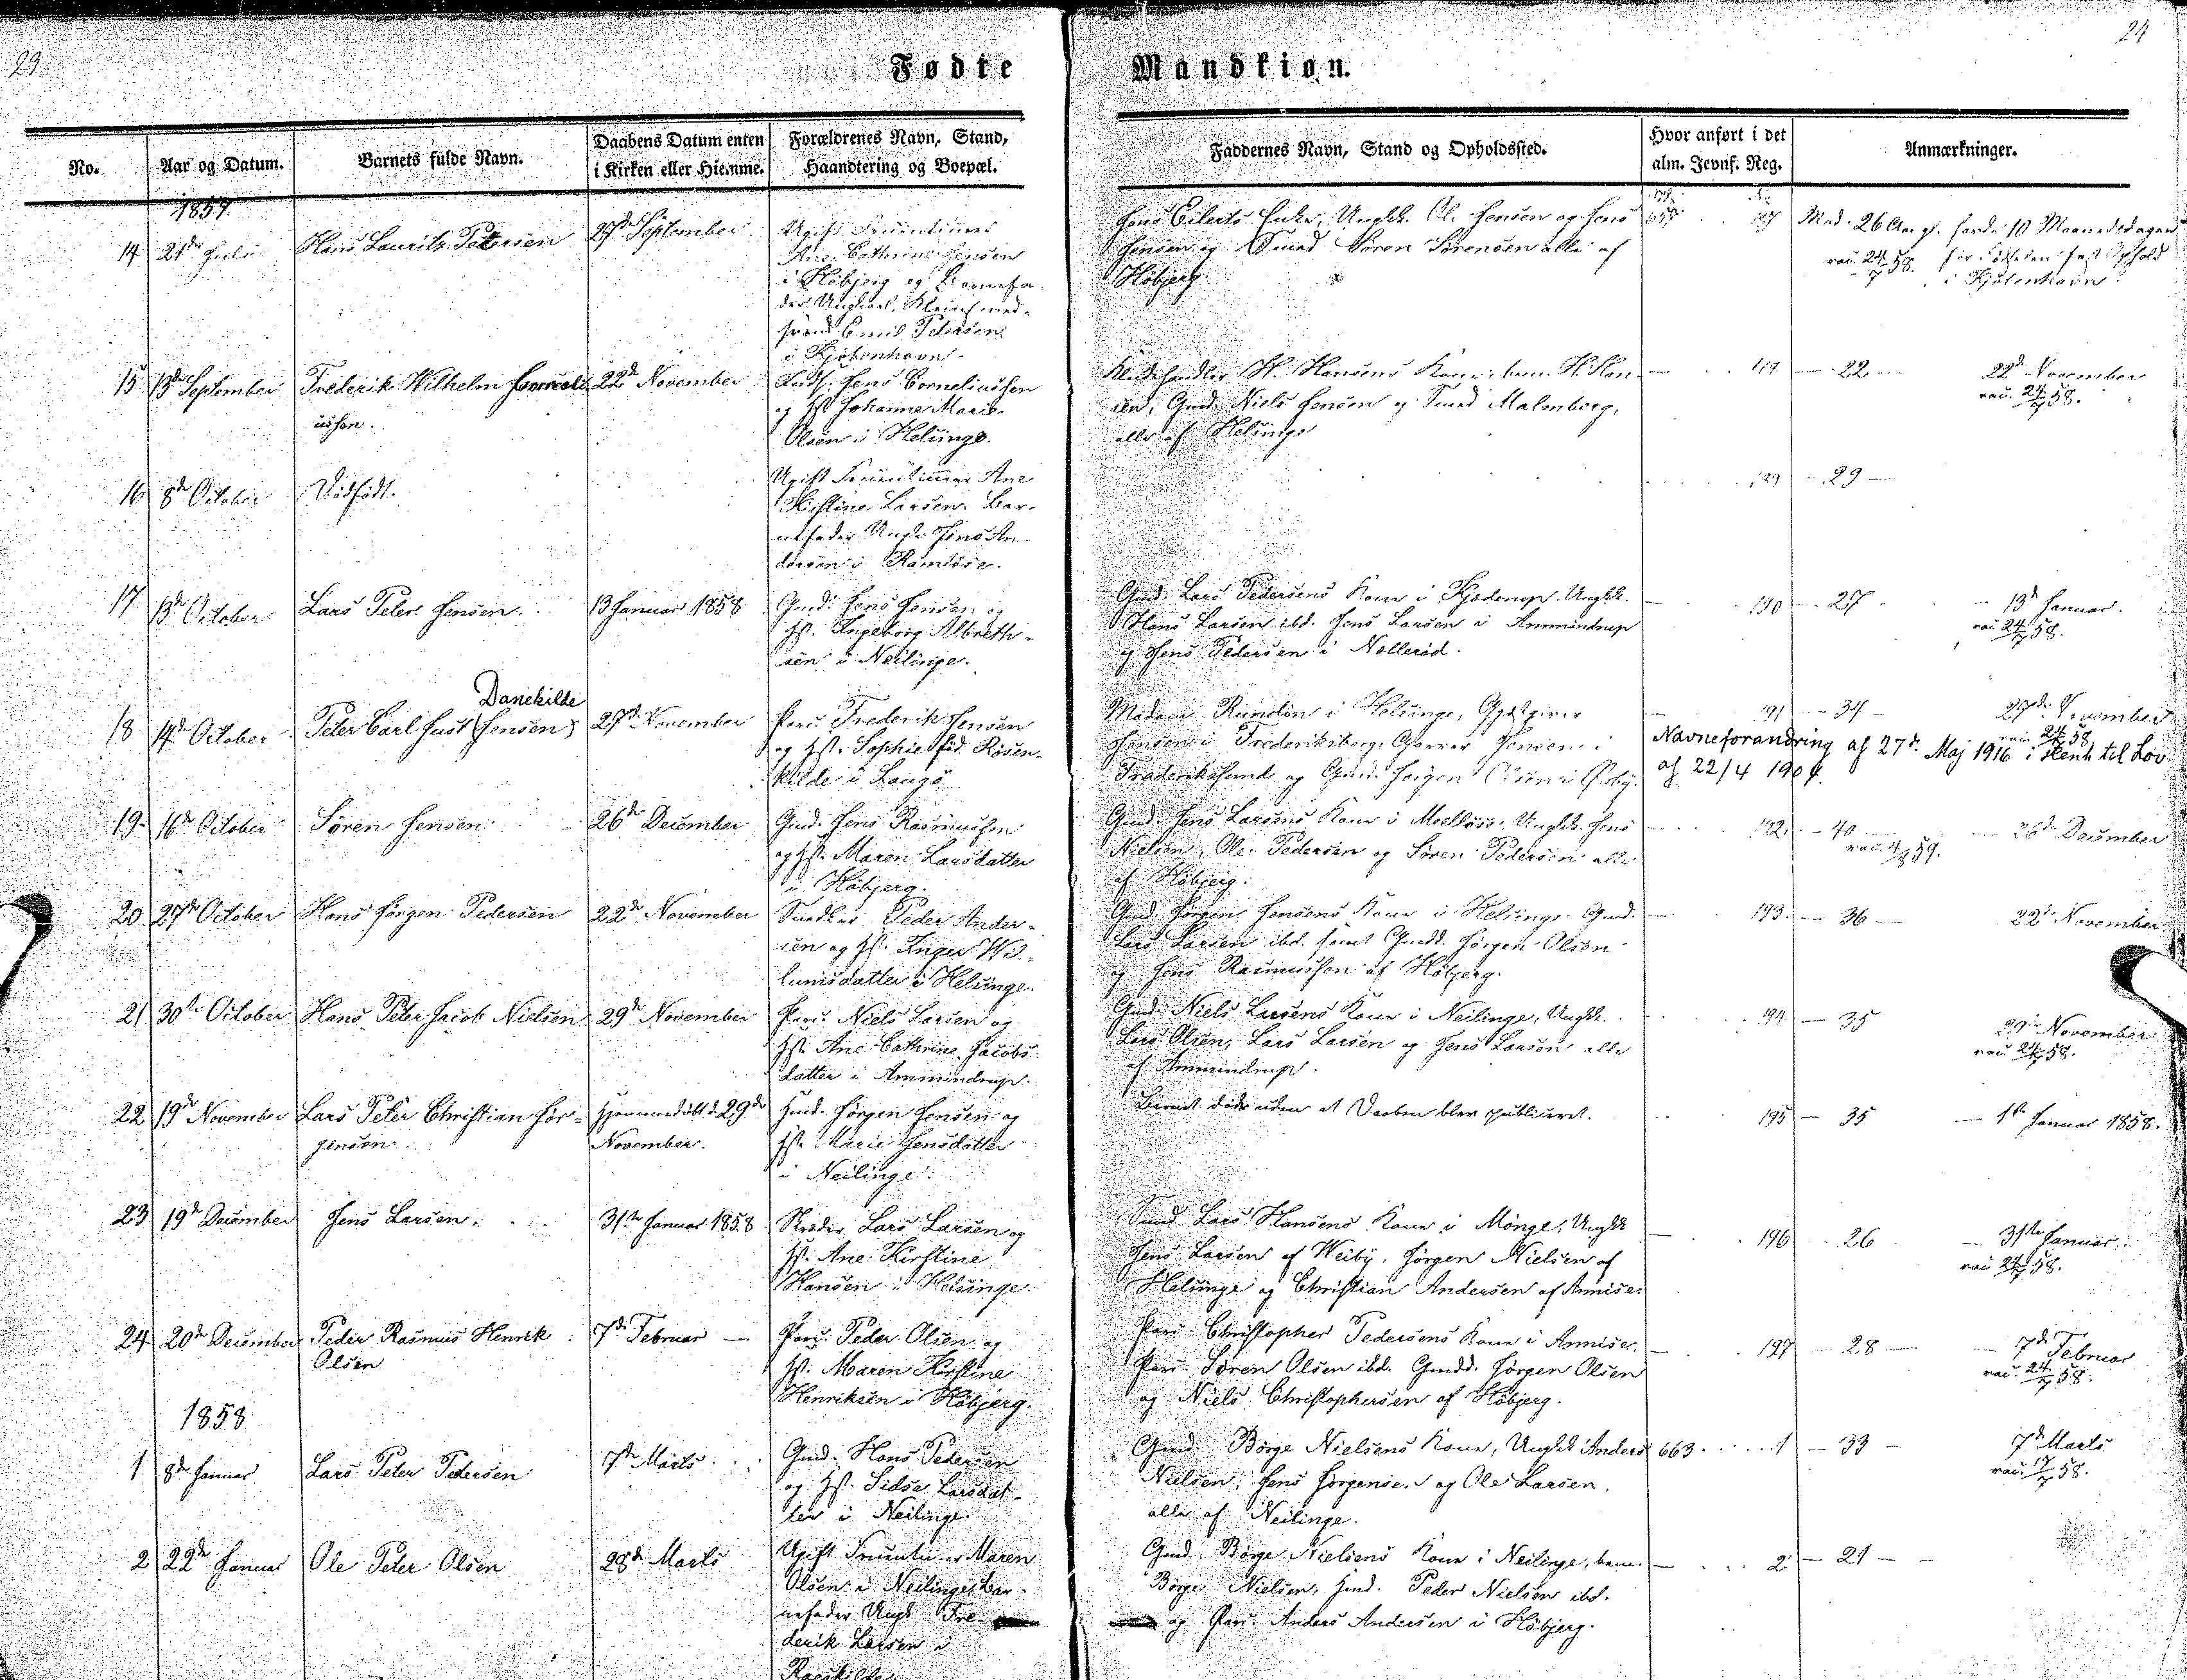 23
24
Fødte
Mandkiøn.
No.
Aar og Datum.
Barnets fulde Navn.
Daabens Datum enten
i Kirken eller Hiemme.
Forældrenes Navn, Stand,
Haandtering og Boepæl.
Faddernes Navn, Stand og Opholdssted.
Hvor anført i det
alm. Jevnf. Reg.
Anmærkninger.
1857.
14
21de Juli
Hans Laurits Pettersen
27de September
Ugift Fruentimmer
Ane Cathrine Jensen
i Höbjerg og Barnefa-
der Ungkarl, Kleinsmed-
svend Emil Petersen
i Kjöbenhavn.
Jens Eilerts Enke, Ungk. Ol. Jensen og Jens
Jensen og Smed Sören Sörensen alle af
Höbjerg.
187
Mod. 26 Aar gl. havde 10 Maanedsdagen
för Födselen fast Ophold
i Kjöbenhavn.
15
13de September
Frederik Wilhelm Corneli-
ussen.
22de November
Huusf. Jens Corneliussen
og Hst. Johanne Marie
Olsen i Helsinge.
H. Hansens Kone, bem. H. Han-
sen, Gmd. Niels Jensen og Smed Malmberg,
alle af Helsinge
188
— 22 —
22de November
16
8de October
Dödfödt.
Ugift Fruentimmer Ane
Kirstine Larsen. Bar-
nefader Ungk. Jens An-
dersen i Ramlöse.
189
— 29 —
17
13de October
Lars Peter Jensen.
13 Januar 1858
Gmd. Jens Jensen og
Hst. Ingeborg Albreth-
sen i Neilinge.
Gmd. Lars Pedersens Kone i Kjöderup. Ungk.
Hans Larsen ibd. Jens Larsen i Ammindrup
og Jens Pedersen i Nölleröd.
190
— 27 —
13de Januar.
18
14de October
Danekilde
Peter Carl Just (Jensen)
27de November
Parc. Frederik Jensen
og Hst. Sophie föd Rosen-
kilde i Laugö
Madam Rundin i Helsinge, Gjæstgiver
Jensen i Frederiksborg, Garver Jensen i
Frederikssund og Gmd. Jörgen Olsen i
191
— 34 —
27de November
Navneforandring af 27de Maj 1916 i Henh. til Lov
af 22/4 1904.
19
16de October
Sören Jensen
26de December
Gmd. Jens Rasmussen
og Hst. Maren Larsdatter
i Höbjerg.
Gmd. Jens Larsens Kone i Mellöse. Ungk. Jens
Nielsen, Ole Pedersen og Sören Pedersen alle
af Höbjerg.
192
— 40 —
26de December
20
27de October
Hans Jörgen Pedersen
22de November
Peder Ander-
sen og Hst. Inger Wil-
lumsdatter i Helsinge.
Gmd. Jörgen Jensens Kone i Helsinge. Gmd.
Lars Larsen ibd. samt Gmdd. Jörgen Olsen
og Jens Rasmussen af Höbjerg.
193
— 36 —
22de November
21
30te October
Hans Peter Jacob Nielsen
29de November
Parc. Niels Larsen og
Hst. Ane Cathrine Jacobs-
datter i Ammindrup.
Gmd. Niels Larsens Kone i Neilinge, Ungk.
Lars Olsen, Lars Larsen og Jens Larsen alle
af Ammindrup.
194
— 35
29de November
22
19de November
Lars Peter Christian Jör-
gensen.
Hjemmedöbt d. 29de
November.
Hmd. Jörgen Jensen og
Hst. Marie Jensdatter
i Neilinge.
Barnet döde uden at Daaben blev publiceret.
195
— 35
— 1ste Januar 1858.
23
19de December
Jens Larsen.
31te Januar 1858
Skræder Lars Larsen og
Hst. Ane Kirstine
Hansen i Helsinge.
Smed Lars Hansens Kone i Mönge, Ungk.
Jens Larsen af Weiby. Jörgen Nielsen af
Helsinge og Christian Andersen af Annise.
196
26
31te Januar.
24
20de December
Peder Rasmus Henrik
Olsen
7de Februar —
Parc. Peder Olsen og
Hst. Maren Kirstine
Henriksen i Höbjerg.
Parc. Christopher Pedersens Kone i Annise.
Parc. Sören Olsen ibd. Gmdd. Jörgen Olsen
og Niels Christophersen af Höbjerg.
197
28 —
7de Februar
1858
1
8de Januar
Lars Peter Pedersen
7de Marts
Gmd. Hans Pedersen
og Hst. Sidse Larsdat-
ter i Neilinge.
Gmd. Börge Nielsens Kone, Ungk. Anders
Nielsen, Jens Jörgensen og Ole Larsen,
alle af Neilinge.
663
1
— 33 —
7de Marts
2
22de Januar
Ole Peter Olsen
28de Marts
Ugift Fruentimmer Maren
Olsen i Neilinge, Bar-
nefader Ungk. Fre-
derik Larsen i
Gmd. Börge Nielsens Kone i Neilinge, bem.
Börge Nielsen, Hmd. Peder Nielsen ibd.
og Parc. Anders Andersen i Höbjerg.
2
— 21 —